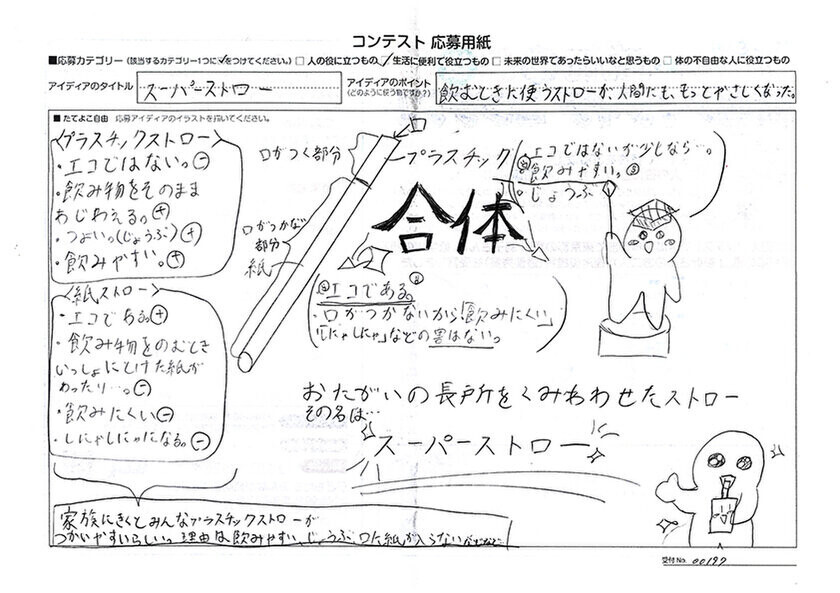 コンテスト 応募用紙
■応募カテゴリー（該当するカテゴリー1つに✓をつけてください。）□ 人の役に立つもの ☑ 生活に便利で役立つもの □ 未来の世界であったらいいなと思うもの □ 体の不自由な人に役立つもの
アイディアのタイトル
スーパーストロー
アイディアのポイント
（どのように使う物ですか？）
飲むときに使うストローが、人間にも、もっとやさしくなった。
■ たてよこ自由 応募アイディアのイラストを描いてください。
〈プラスチックストロー〉
・エコではない。⊖
・飲み物をそのまま
あじわえる。⊕
・つよい。(じょうぶ)⊕
・飲みやすい。⊕
〈紙ストロー〉
・エコである。⊕
・飲み物をのむとき
いっしょにとけた紙が
わったり…。⊖
・飲みにくい⊖
・しにゃしにゃになる。⊖
口がつく部分
プラスチック
エコではないが少しなら…。
飲みやすい。
・じょうぶ
合体
口がつかない
部分
紙
エコである。
・口がつかないから「飲みにくい」
「しにゃしにゃ」などの害はない。
おたがいの長戸所をくみあわせたストロー
その名は…
スーパーストロー
家族にきくとみんなプラスチックストローが
つかいやすいらしい。理由は、飲みやすい、じょうぶ、口に紙が入らないなどなど
受付No. 00197